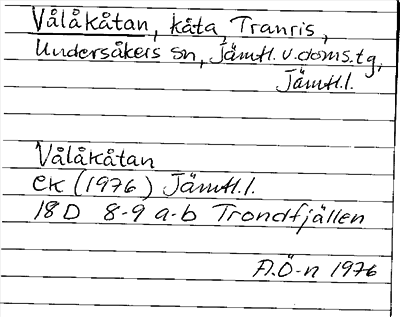 Vålåkåtan, kåta, Tranris,
Undersåkers sn, Jämtl. v. doms. tg,
Jämtl. l.
Vålåkåtan
ek (1976) Jämtl. l.
18D 8-9 a-b Trondfjällen
A.Ö-n 1976